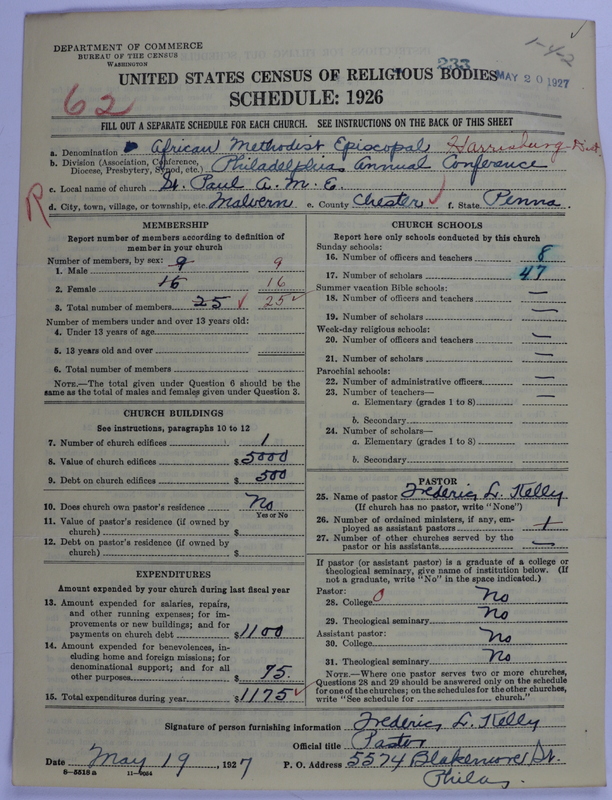 DEPARTMENT OF COMMERCE
BUREAU OF THE CENSUS
WASHINGTON
1-4-2
233
MAY 20 1927
UNITED STATES CENSUS OF RELIGIOUS BODIES
SCHEDULE: 1926
62
FILL OUT A SEPARATE SCHEDULE FOR EACH CHURCH. SEE INSTRUCTIONS ON THE BACK OF THIS SHEET
a. Denomination African Methodist Episcopal Harrisburg Dist
b. Division (Association, Conference, Diocese, Presbytery, Synod, etc.) Philadelphia Annual Conference
c. Local name of church St. Paul A. M. E.
R
d. City, town, village, or township, etc. Malvern e. County Chester f. State Penna.
MEMBERSHIP
Report number of members according to definition of
member in your church
Number of members, by sex:
1. Male 9 9
2. Female 16 16
3. Total number of members 25 25
Number of members under and over 13 years old:
4. Under 13 years of age
5. 13 years old and over
6. Total number of members
NOTE.—The total given under Question 6 should be the
same as the total of males and females given under Question 3.
CHURCH BUILDINGS
See instructions, paragraphs 10 to 12
7. Number of church edifices 1
8. Value of church edifices $5000
9. Debt on church edifices $500
10. Does church own pastor's residence No
Yes or No
11. Value of pastor's residence (if owned by
church) $
12. Debt on pastor's residence (if owned by
church) $
EXPENDITURES
Amount expended by your church during last fiscal year
13. Amount expended for salaries, repairs,
and other running expenses; for im-
provements or new buildings; and for
payments on church debt $1100
14. Amount expended for benevolences, in-
cluding home and foreign missions; for
denominational support; and for all
other purposes $75.
15. Total expenditures during year $1175
CHURCH SCHOOLS
Report here only schools conducted by this church
Sunday schools:
16. Number of officers and teachers 8
17. Number of scholars 47
Summer vacation Bible schools:
18. Number of officers and teachers —
19. Number of scholars —
Week-day religious schools:
20. Number of officers and teachers —
21. Number of scholars —
Parochial schools:
22. Number of administrative officers —
23. Number of teachers—
a. Elementary (grades 1 to 8) —
b. Secondary
24. Number of scholars—
a. Elementary (grades 1 to 8)
b. Secondary
PASTOR
25. Name of pastor Frederic L. Kelly
(If church has no pastor, write "None")
26. Number of ordained ministers, if any, em-
ployed as assistant pastors 1
27. Number of other churches served by the
pastor or his assistants —
If pastor (or assistant pastor) is a graduate of a college or
theological seminary, give name of institution below. (If
not a graduate, write "No" in the space indicated.)
Pastor:
28. College 0 No
29. Theological seminary No
Assistant pastor:
30. College No
31. Theological seminary No
NOTE.—Where one pastor serves two or more churches,
Questions 28 and 29 should be answered only on the schedule
for one of the churches; on the schedules for the other churches,
write "See schedule for church."
Signature of person furnishing information Frederic L. Kelly
Official title Pastor
Date May 19, 1927 P. O. Address 5574 Blakemore St.
8—5516 a 11—9034 Phila.